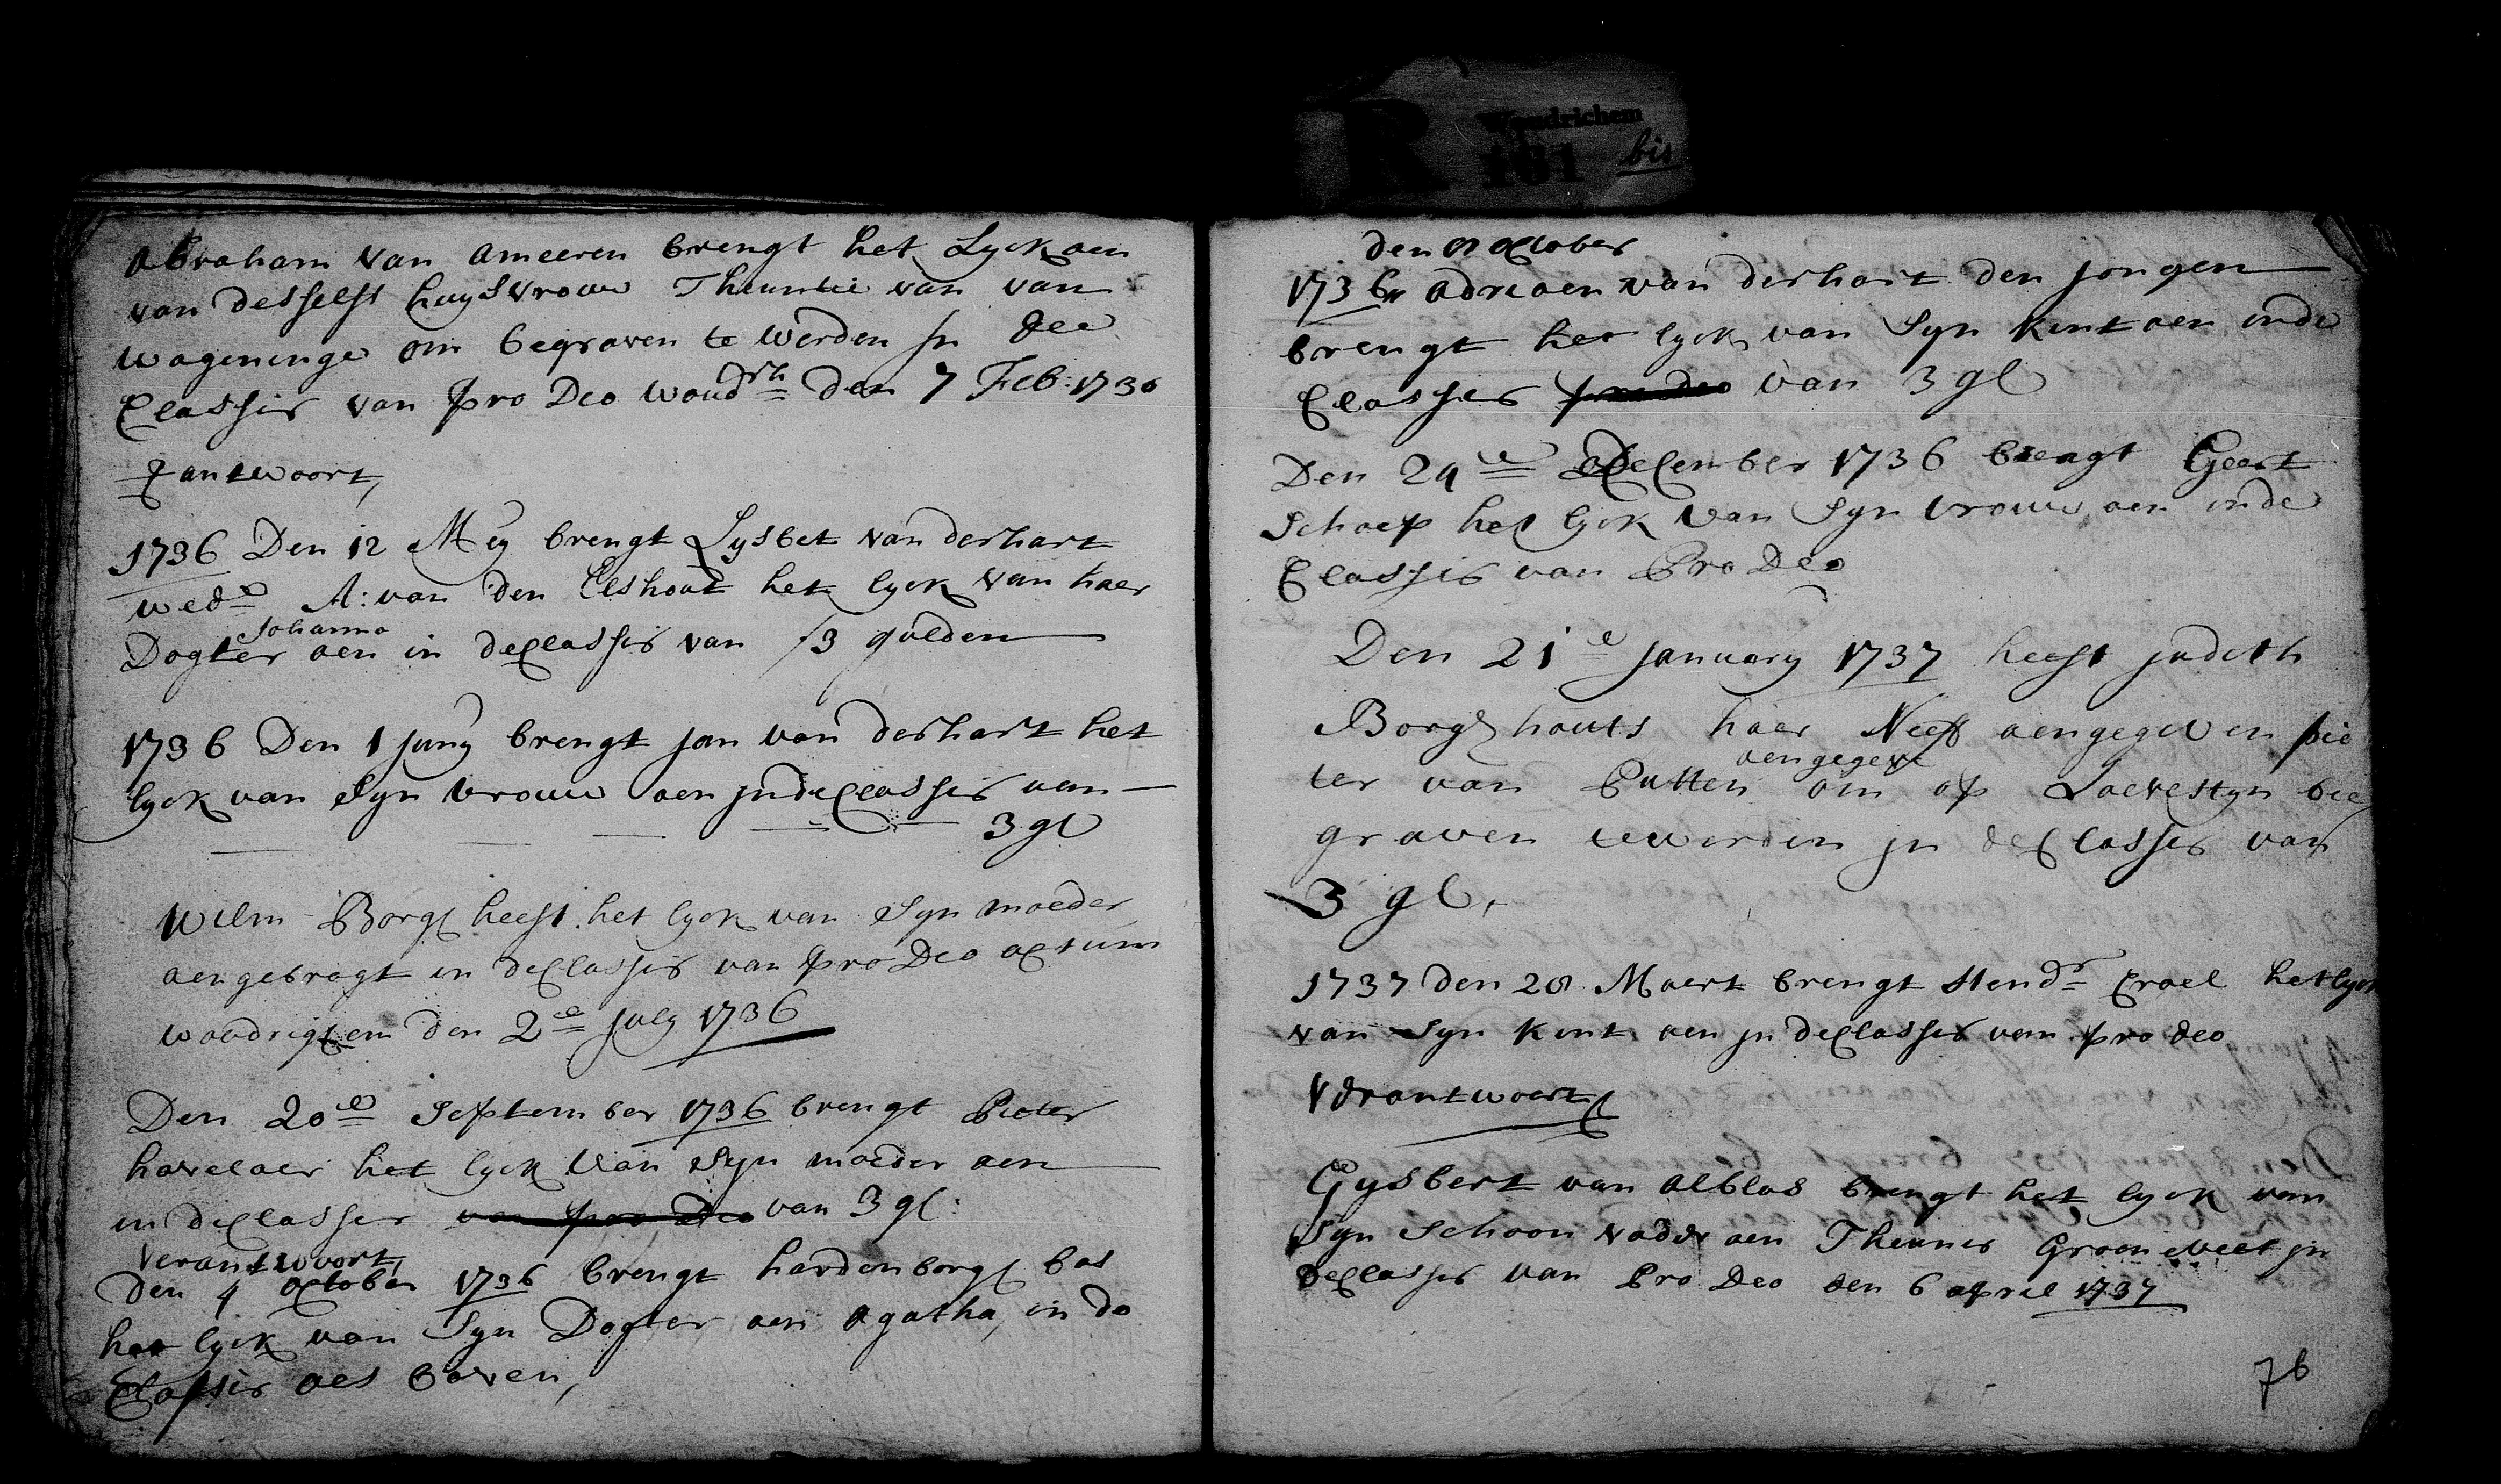 Abraham van Ameeren brengt het Lyck aen
van desselfs huysvrouw Theuntie van van
wageninge om begraven te werden in dee
Classis van pro Deo woudrh den 7 Feb: 1736
verantwoort,
1736 Den 12 Mey brengt Lysbet van der hart
wede A: van den Elshout het lyck van haer
Johanna
Dogter aen in de Classis van f3 gulden
1736 Den 1 Juny brengt Jan van der hart het
lyck van Syn vrouw aen in de Classis van
3 gl
Wilm Borg heeft het lyck van Syn moeder
aengebragt in de Classis van pro Deo actum
woudrigcem den 2de July 1736
Den 20de September 1736 brengt Pieter
havelaer het lyck van Syn moeder aen
in de Classis van pro Deo van 3 gl:
Verantwoort,
Den 4 october 1736 brengt hardenborg bas
het lyck van Syn Dogter aen Agatha, in de
Classis als boven,
R Woudrichem
161 bis
den 8 october
1736 Adriaen van der hart den Jongen
brengt het lyck van Syn kint aen inde
Classis pro deo van 3 gl
Den 24de December 1736 brengt Geert
Schaep het lyck van Syn vrouw aen inde
Classis van Pro Deo
Den 21e January 1737 heeft Judith
Borghouts haer Neeff aengegeven Pie
aengegeve
ter van Putten om op Loevestyn bee
graven te werden in de Classis van
3 gl,
1737 den 28 Maert brengt Hendr Crael het lyck
van Syn kint aen in de Classis van pro deo
Verantwoort
Gysbert van Alblas brengt het lyck van
Syn Schoon vader aen Theunis Groeneveet in
de Classis van Pro Deo den 6 April 1737
76